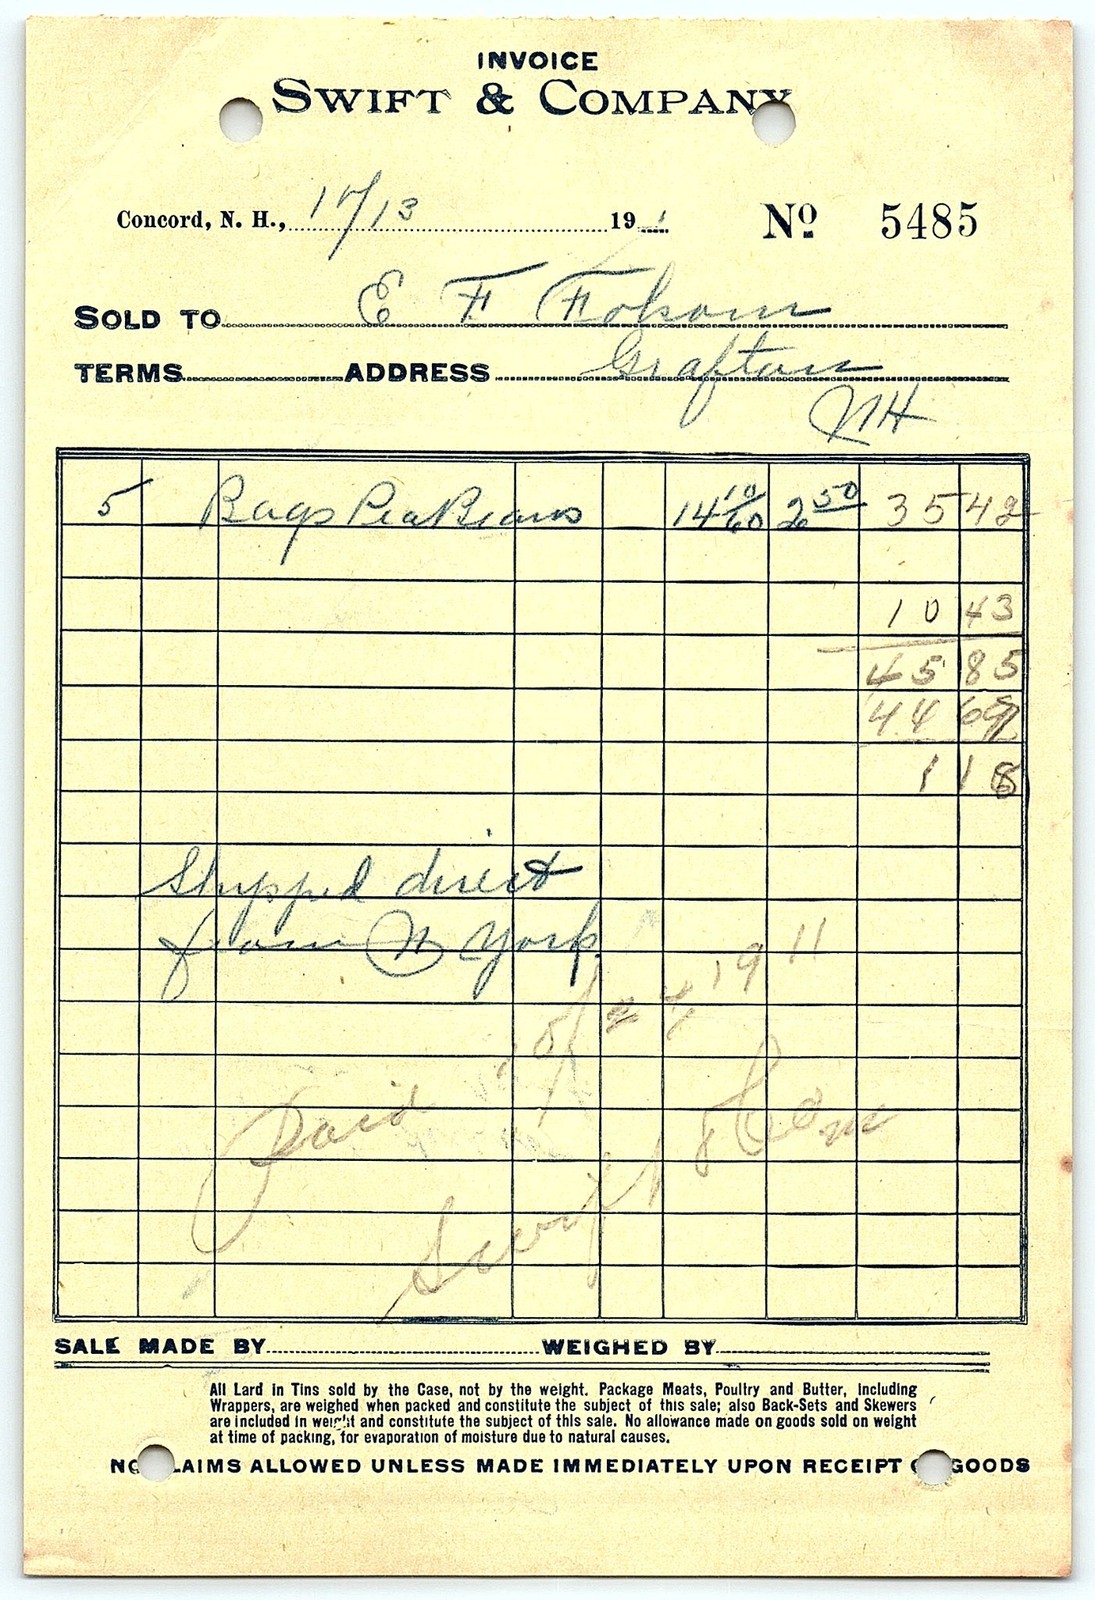 INVOICE
SWIFT & COMPANY
Concord, N. H., 19 1 No 5485
SOLD TO E F Folsom
TERMS ADDRESS Grafton
NH
5 Bags Pea Beans 14 10/60 2 50 35 42
10 43
45 85
44 67
1 18
Shipped direct
from N York
Paid 5/24 1911
Swift & Com
SALE MADE BY WEIGHED BY
All Lard in Tins sold by the Case, not by the weight. Package Meats, Poultry and Butter, Including
Wrappers, are weighed when packed and constitute the subject of this sale; also Back-Sets and Skewers
are included in weight and constitute the subject of this sale. No allowance made on goods sold on weight
at time of packing, for evaporation of moisture due to natural causes.
NO CLAIMS ALLOWED UNLESS MADE IMMEDIATELY UPON RECEIPT OF GOODS